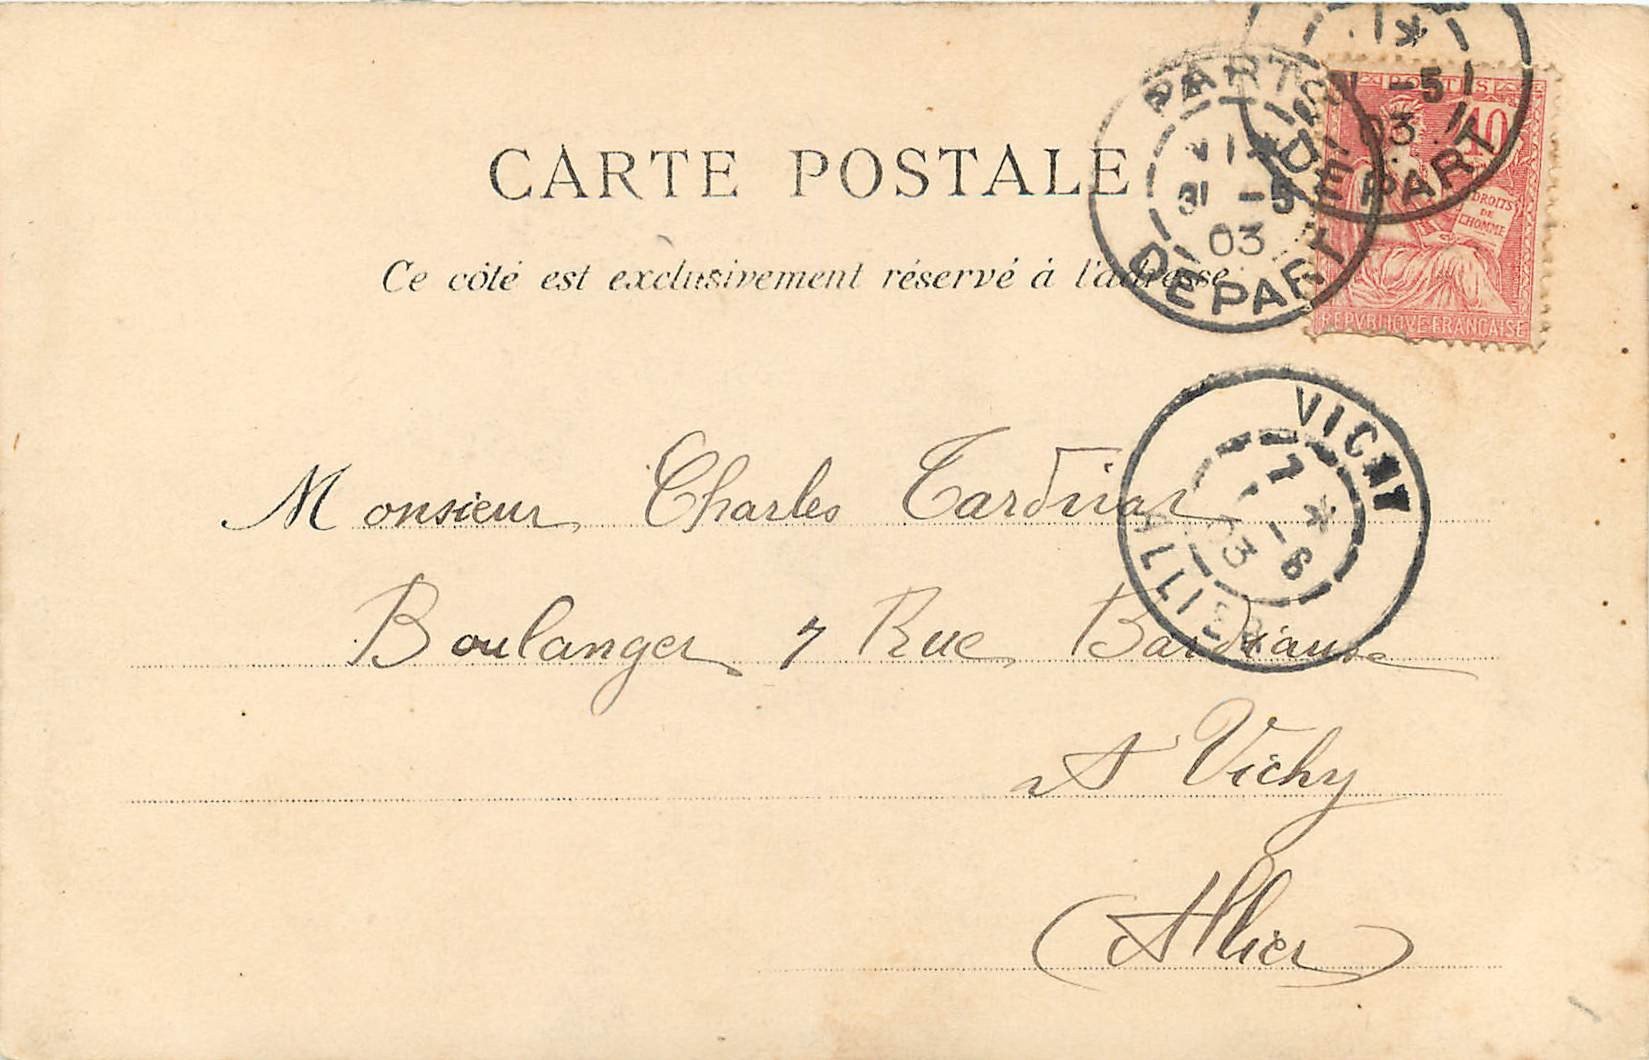 CARTE POSTALE
Ce côté est exclusivement réservé à l'adresse
PARIS VII
31 -5
03
DEPART
* -5
03
DEPART
POSTES
10
DROITS
DE
L'HOMME
REPVBLIQVE FRANCAISE
VICHY
7 *
1 -6
03
ALLIER
Monsieur Charles Tardivat
Boulanger 7 Rue
A Vichy
(Allier)